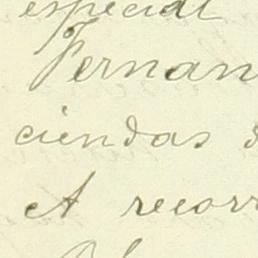 especial
Fernan
ciendas d
A recorr